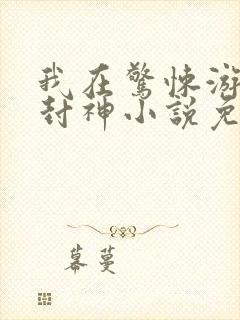 我在驚悚游
封神小說免
幕蔓